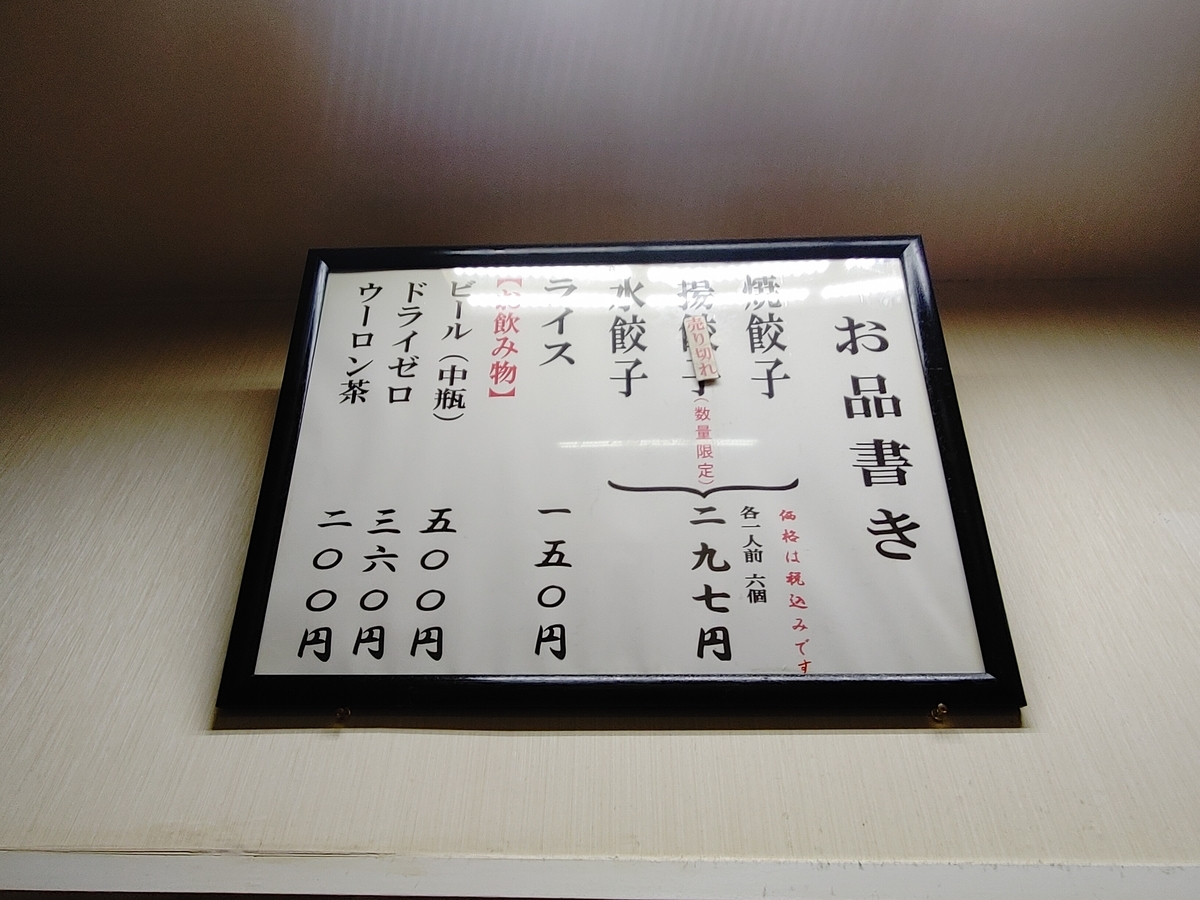 お品書き
価格は税込みです
焼餃子
揚餃子
売り切れ
(数量限定)
水餃子
各一人前 六個
二九七円
ライス
一五〇円
【お飲み物】
ビール(中瓶)
五〇〇円
ドライゼロ
三六〇円
ウーロン茶
二〇〇円